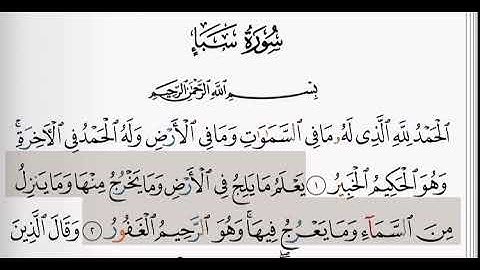 سُورَةُ سَبَإٍ
بِسْمِ اللَّهِ الرَّحْمَٰنِ الرَّحِيمِ
الْحَمْدُ لِلَّهِ الَّذِي لَهُ مَا فِي السَّمَاوَاتِ وَمَا فِي الْأَرْضِ وَلَهُ الْحَمْدُ فِي الْآخِرَةِ ۚ
وَهُوَ الْحَكِيمُ الْخَبِيرُ ١ يَعْلَمُ مَا يَلِجُ فِي الْأَرْضِ وَمَا يَخْرُجُ مِنْهَا وَمَا يَنزِلُ
مِنَ السَّمَاءِ وَمَا يَعْرُجُ فِيهَا ۚ وَهُوَ الرَّحِيمُ الْغَفُورُ ٢ وَقَالَ الَّذِينَ